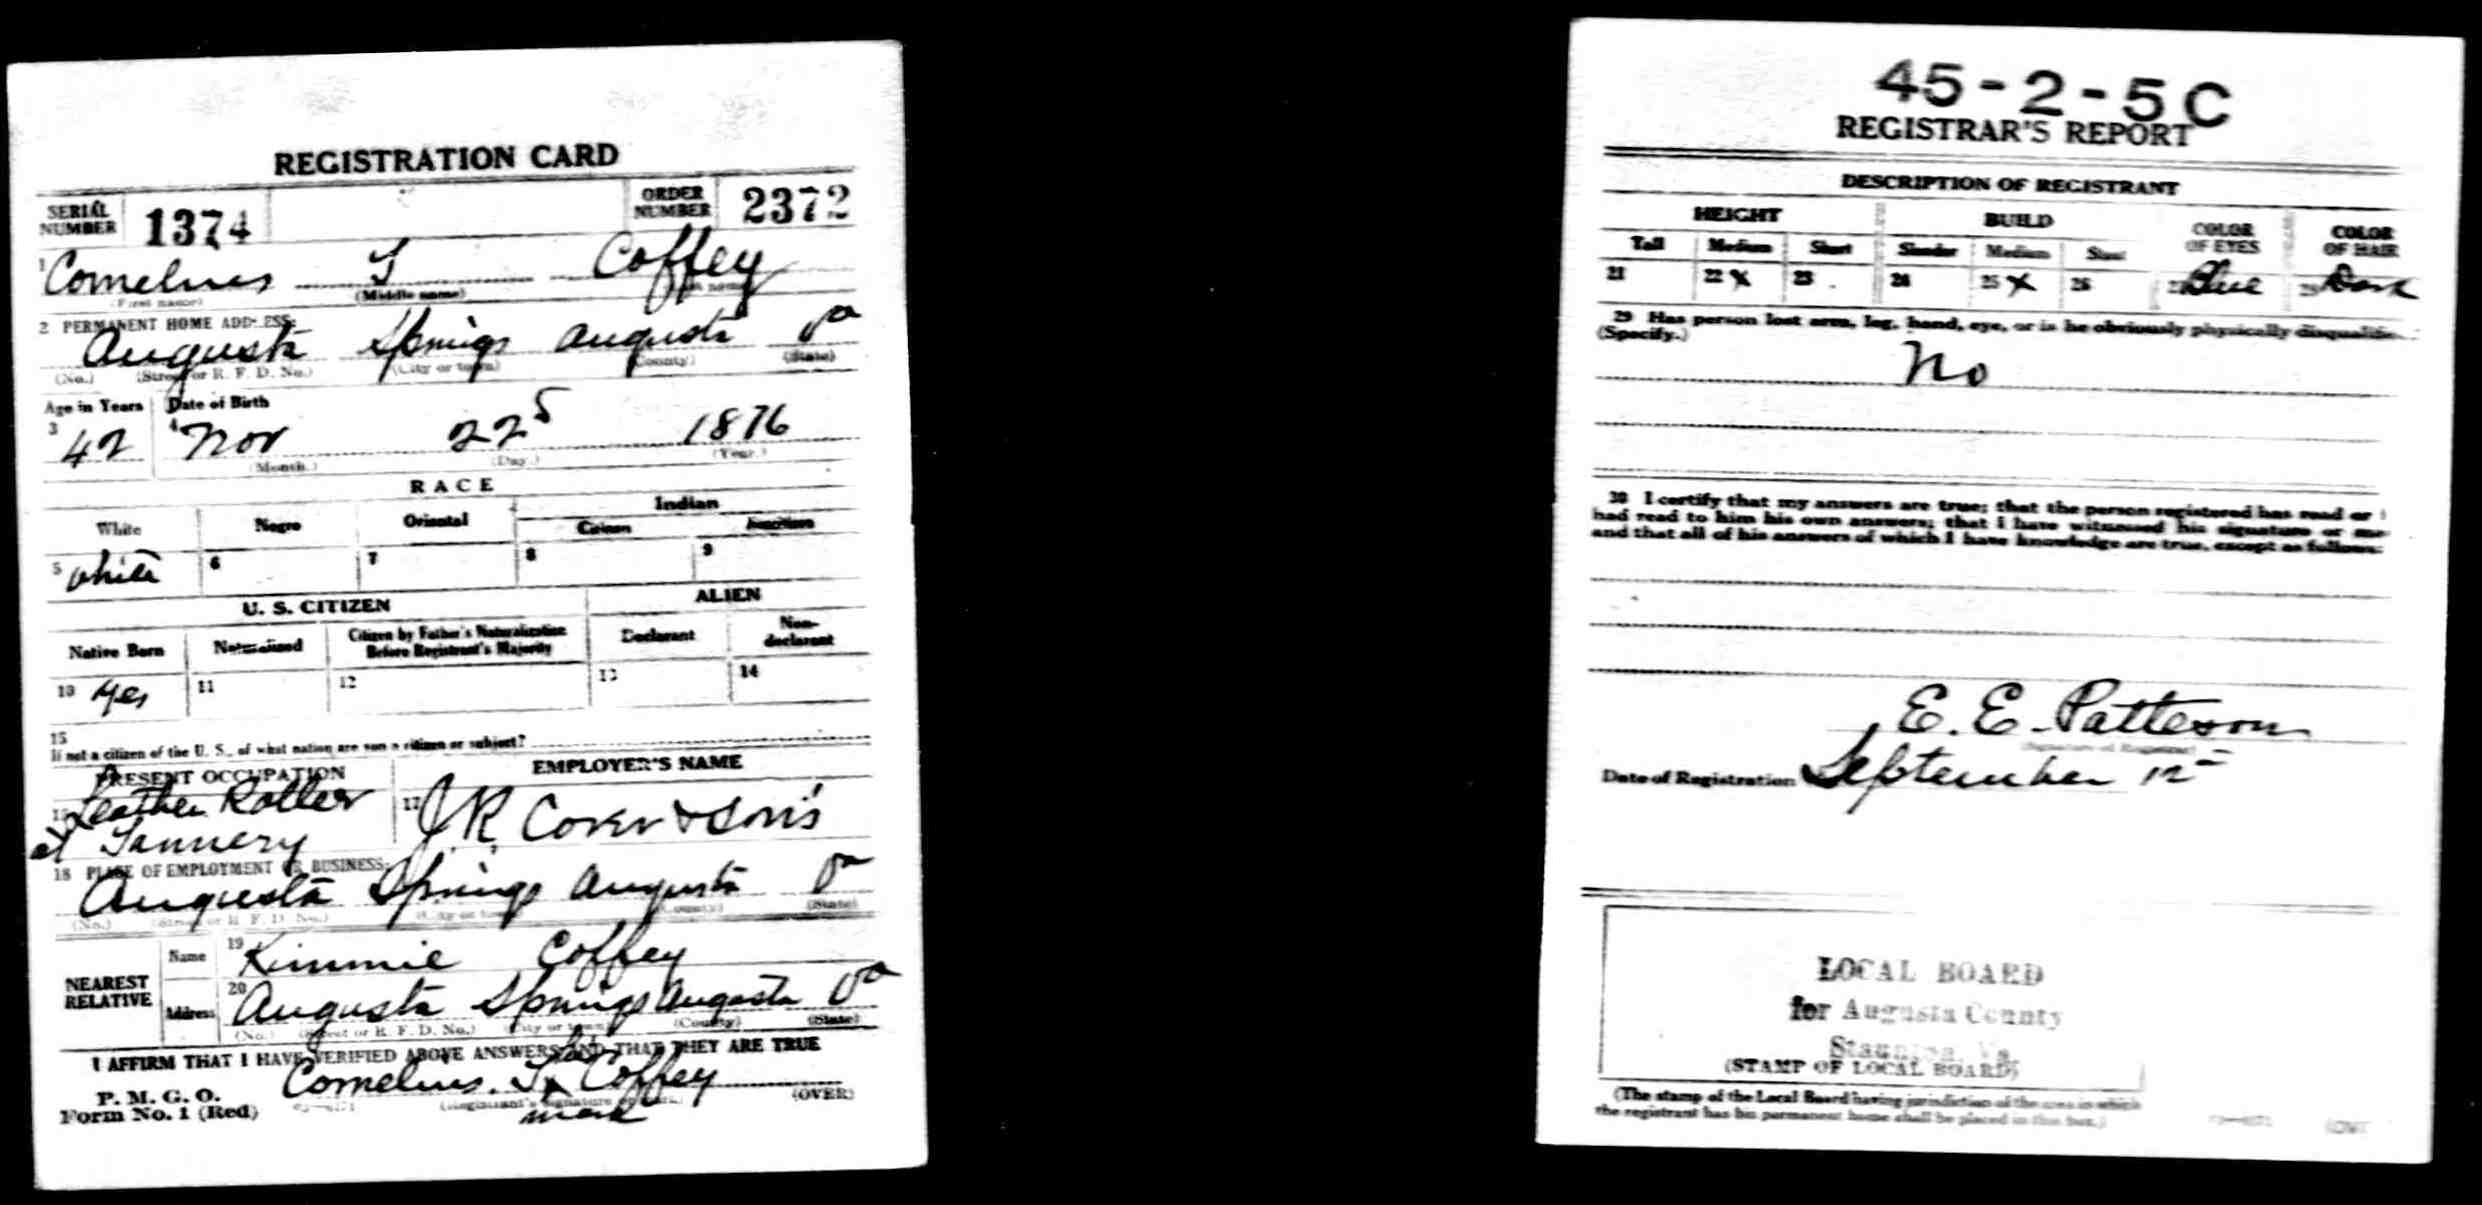 REGISTRATION CARD
SERIAL NUMBER 1374 ORDER NUMBER 2372
1 Cornelius S Coffey
(First name) (Middle name)
2 PERMANENT HOME ADDRESS:
Augusta Springs Augusta Va
(No.) (Street or R. F. D. No.) (City or town) (County) (State)
Age in Years Date of Birth
3 42 4 Nov 22 1876
(Month.) (Day.) (Year.)
RACE
White Negro Oriental Indian
Citizen
5 White 6 7 8 9
U. S. CITIZEN ALIEN
Native Born Naturalized Citizen by Father's Naturalization Before Registrant's Majority Declarant Non-declarant
10 Yes 11 12 13 14
15
If not a citizen of the U. S., of what nation are you a citizen or subject?
PRESENT OCCUPATION EMPLOYER'S NAME
16 Leather Roller 17 J R Cover & Son's
at Tannery
18 PLACE OF EMPLOYMENT OR BUSINESS:
Augusta Springs Augusta Va
(No.) (Street or R. F. D. No.) (City or town) (County) (State)
NEAREST RELATIVE
Name 19 Kimmie Coffey
Address 20 Augusta Springs Augusta Va
(No.) (Street or R. F. D. No.) (City or town) (County) (State)
I AFFIRM THAT I HAVE VERIFIED ABOVE ANSWERS AND THAT THEY ARE TRUE
his
P. M. G. O. Cornelius S x Coffey
Form No. 1 (Red) (Registrant's signature or mark.) (OVER)
mark
45-2-5 C
REGISTRAR'S REPORT
DESCRIPTION OF REGISTRANT
HEIGHT BUILD COLOR OF EYES COLOR OF HAIR
Tall Medium Short Slender Medium Stout
21 22 x 23 24 25 x 26 27 Blue Dark
29 Has person lost arm, leg, hand, eye, or is he obviously physically
(Specify.)
No
30 I certify that my answers are true; that the person registered has read or
had read to him his own answers; that I have witnessed his signature or
and that all of his answers of which I have knowledge are true, except as follows:
E. E. Patteson
(Signature of Registrar)
Date of Registration September 12
LOCAL BOARD
for Augusta County
Staunton, Va.
(STAMP OF LOCAL BOARD)
(The stamp of the Local Board having jurisdiction of the area in which
the registrant has his permanent home shall be placed in this box.)